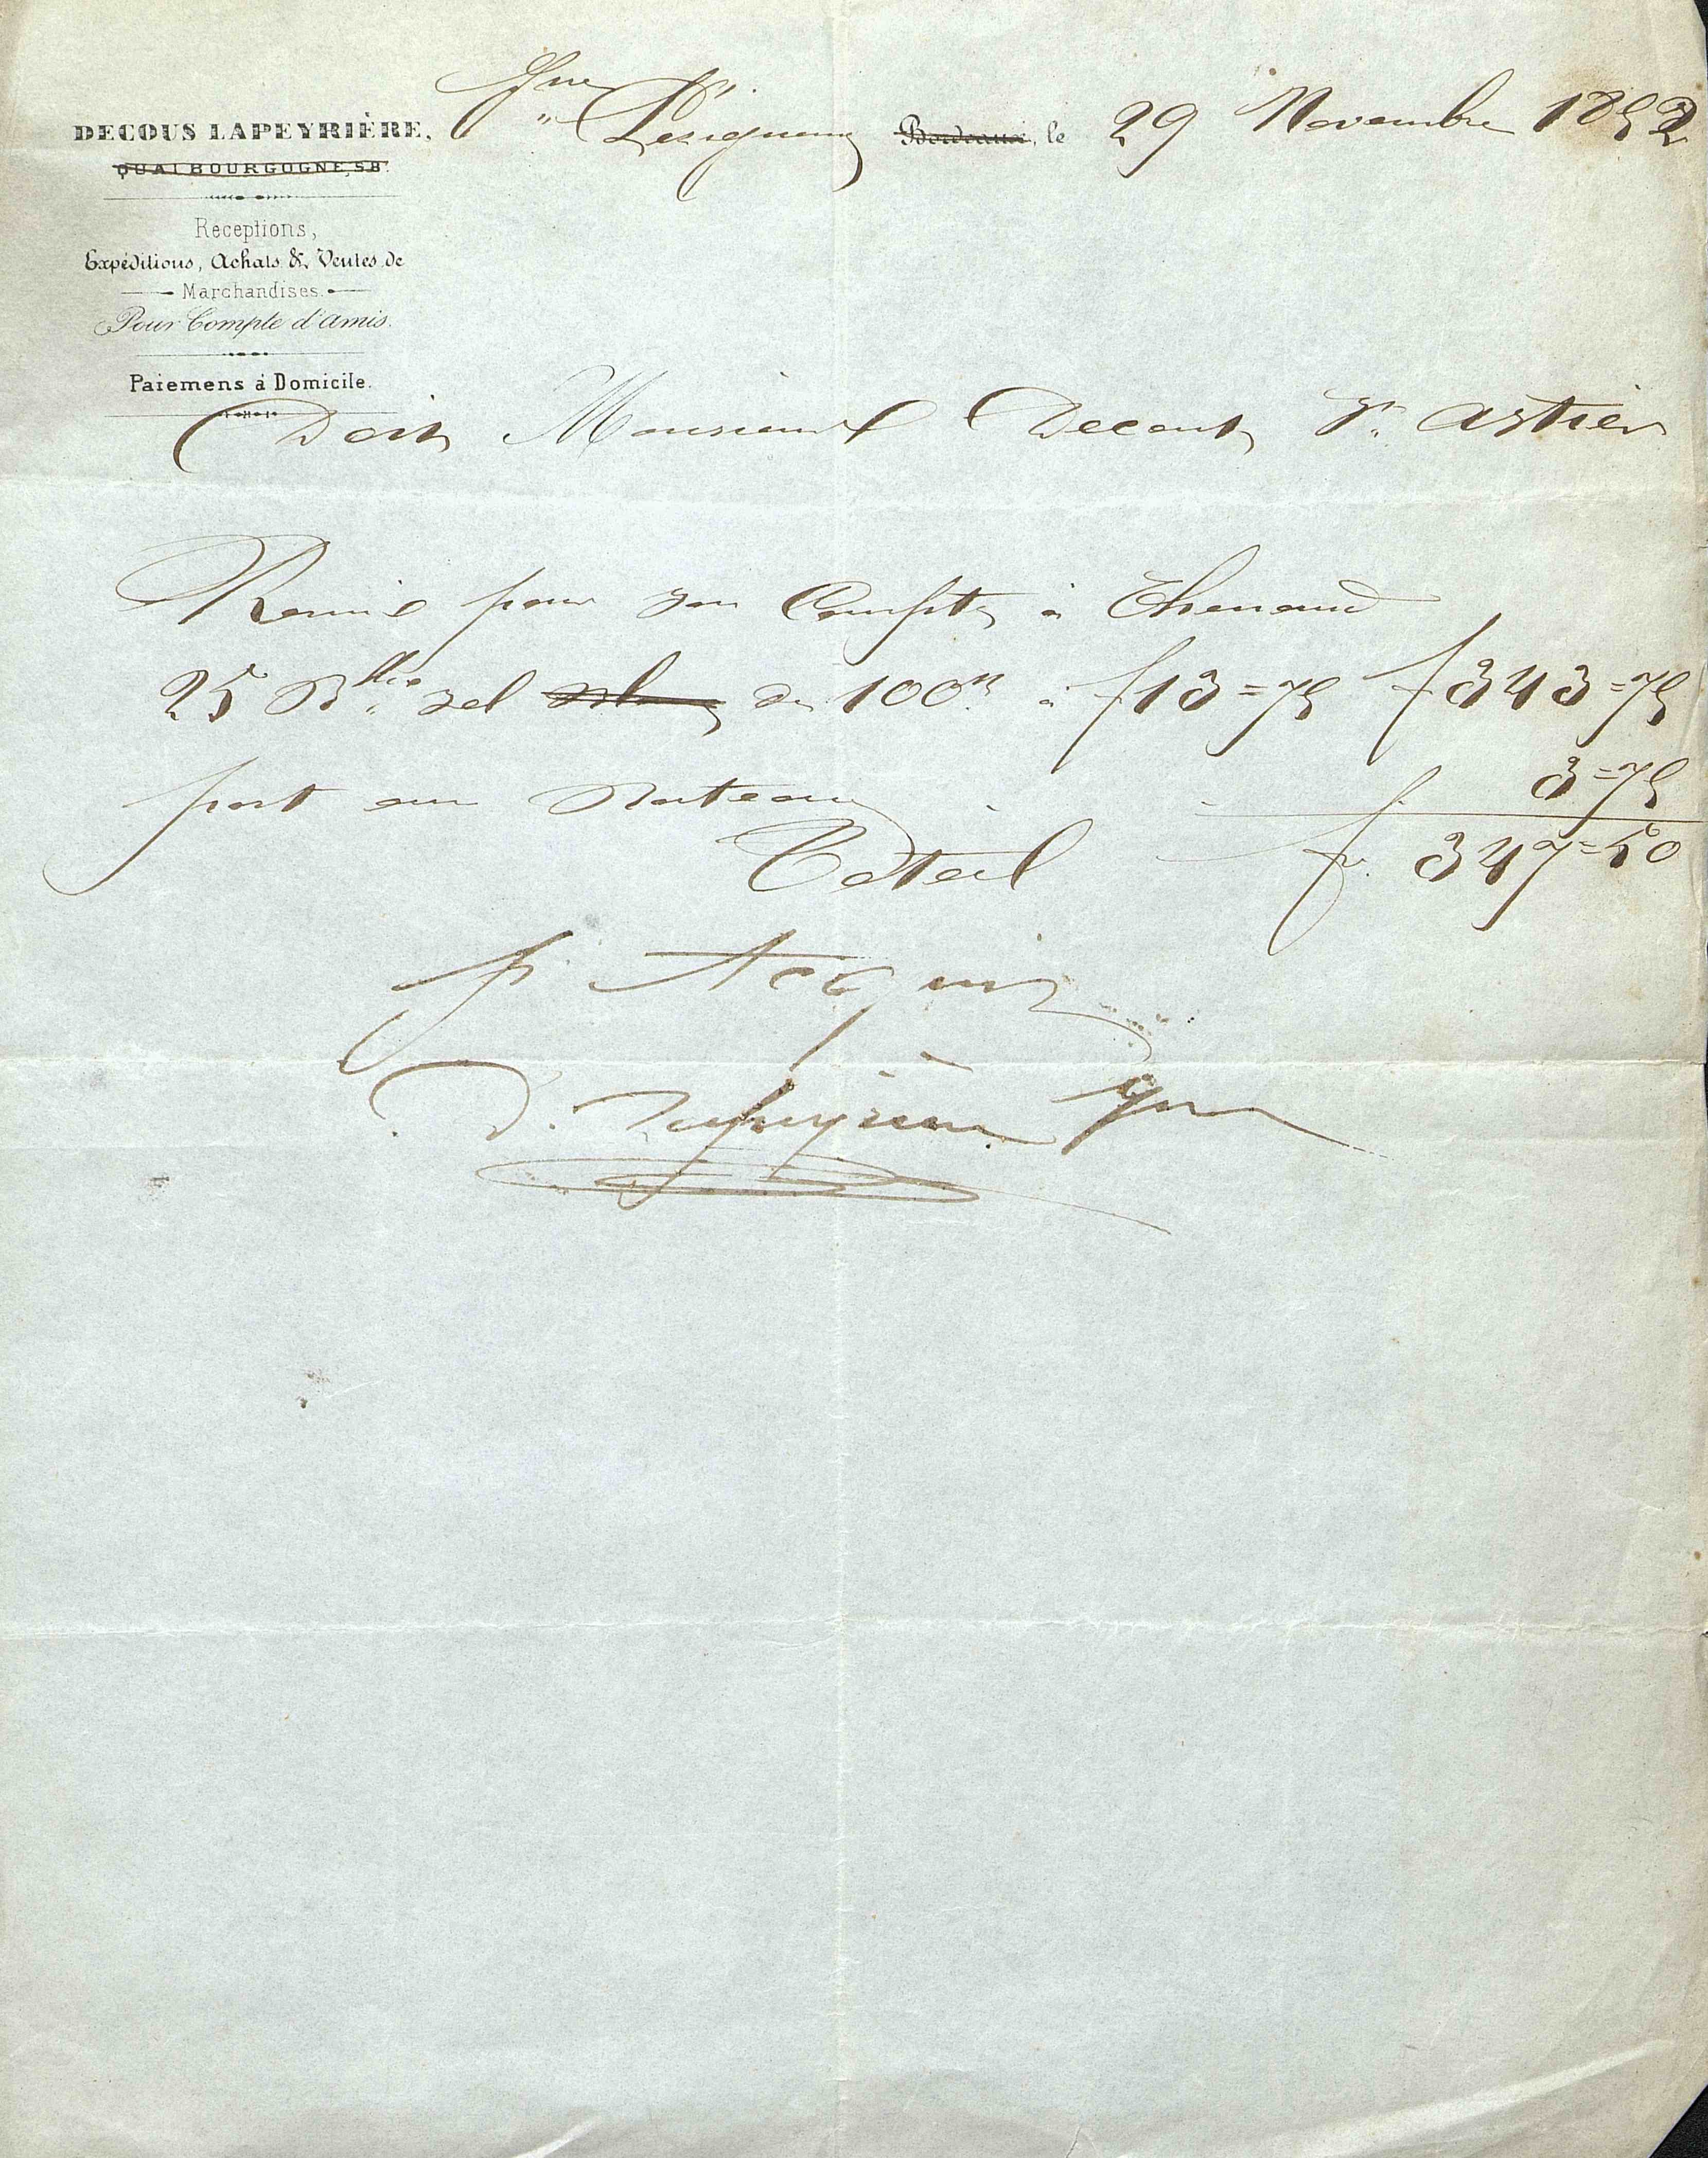 DECOUS LAPEYRIÈRE,
QUAI BOURGOGNE, 58.
Receptions,
Expéditions, Achats & Ventes de
Marchandises.
Pour Compte d'amis.
Paiemens à Domicile.
Jne Bordeaux, le 29 Novembre 1852
Doit Monsieur Decoux St Astier
Remis pour son Compte à Thenaud
25 Blles sel de 100k à f 13=75 f 343=75
port au Bateau f. 3=75
Total f. 347=50
p. Acquit
D. Lapeyrière Jne